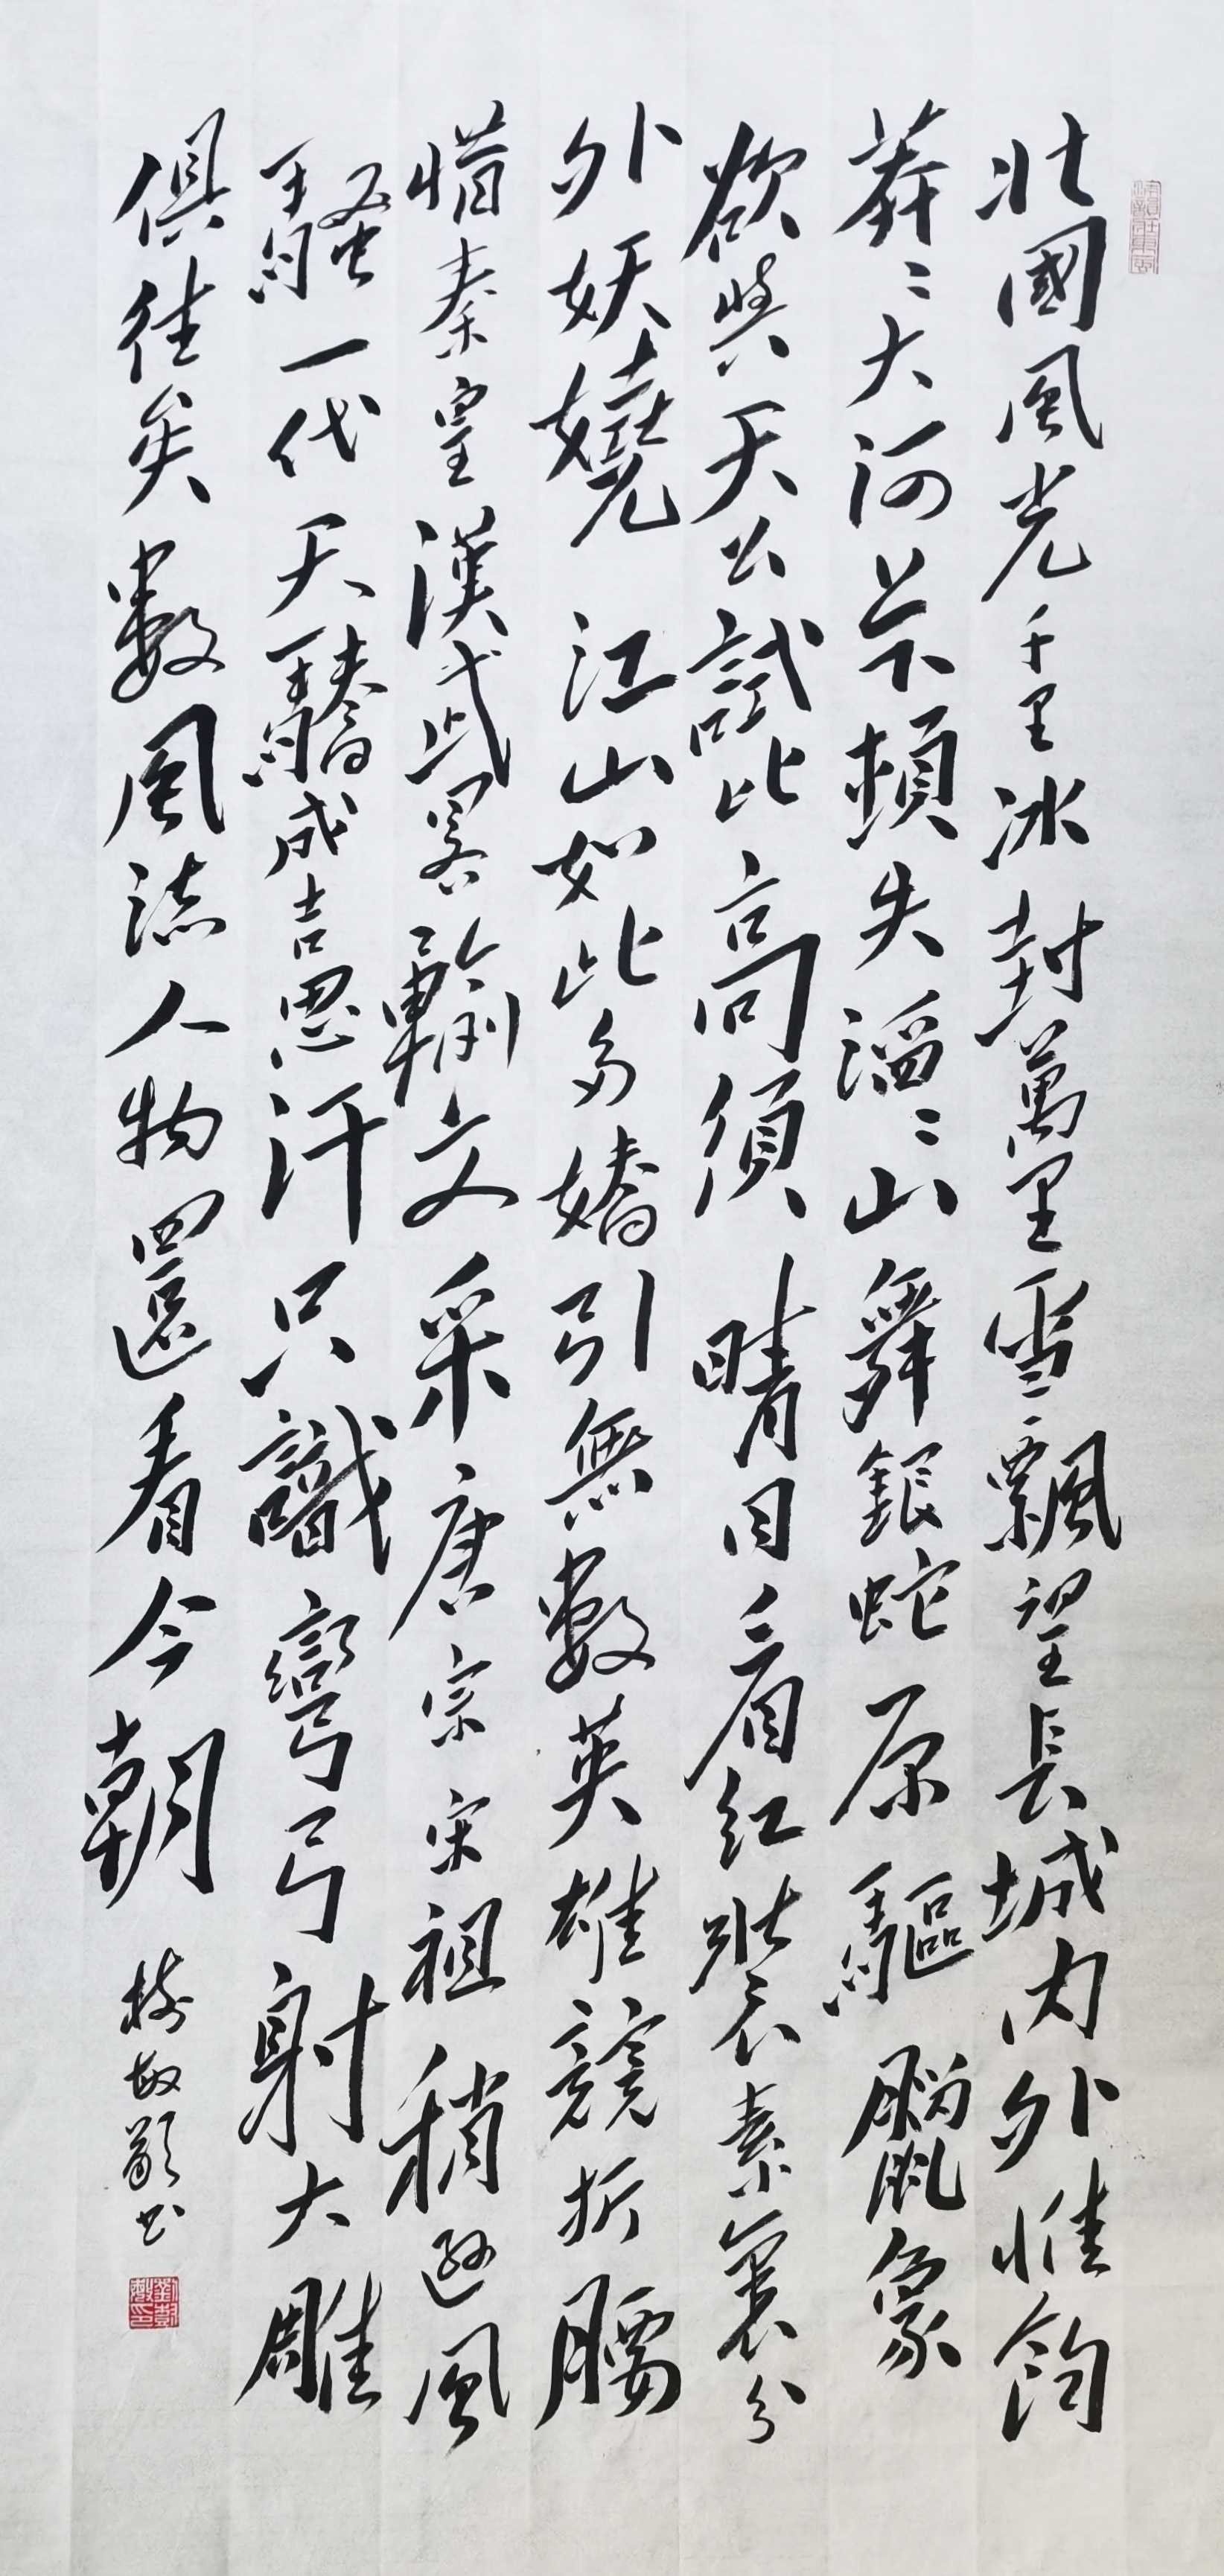 北國風光千里冰封萬里雪飄望長城內外惟餘
莽〻大河上下頓失滔〻山舞銀蛇原驅臘象
欲與天公試比高須晴日看紅裝素裹分
外妖嬈江山如此多嬌引無數英雄競折腰
惜秦皇漢武略輸文采唐宗宋祖稍遜風
騷一代天驕成吉思汗只識彎弓射大雕
俱往矣數風流人物還看今朝
書